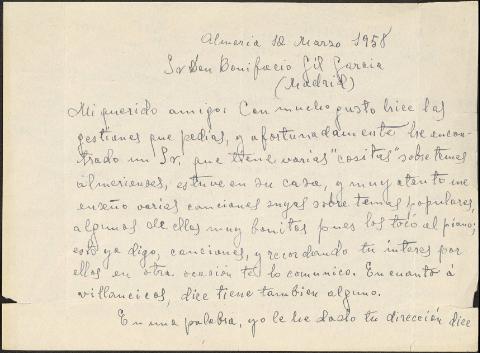 Almeria 12 Marzo 1958
Sr Don Bonifacio Gil Garcia
(Madrid)
Mi querido amigo: Con mucho gusto hice las
gestiones que pedias, y afortunadamente he encon-
trado un Sr. que tiene varias "cositas" sobre temas
almerienses, estuve en su casa, y muy atento me
enseño varias canciones suyas sobre temas populares,
algunos de ellos muy bonitos pues los tocó al piano;
esto ya digo, canciones, y recordando tu interes por
ellos en otra ocasión te lo comunico. En cuanto á
villancicos, dice tiene tambien alguno.
En una palabra, yo le he dado tu dirección dice